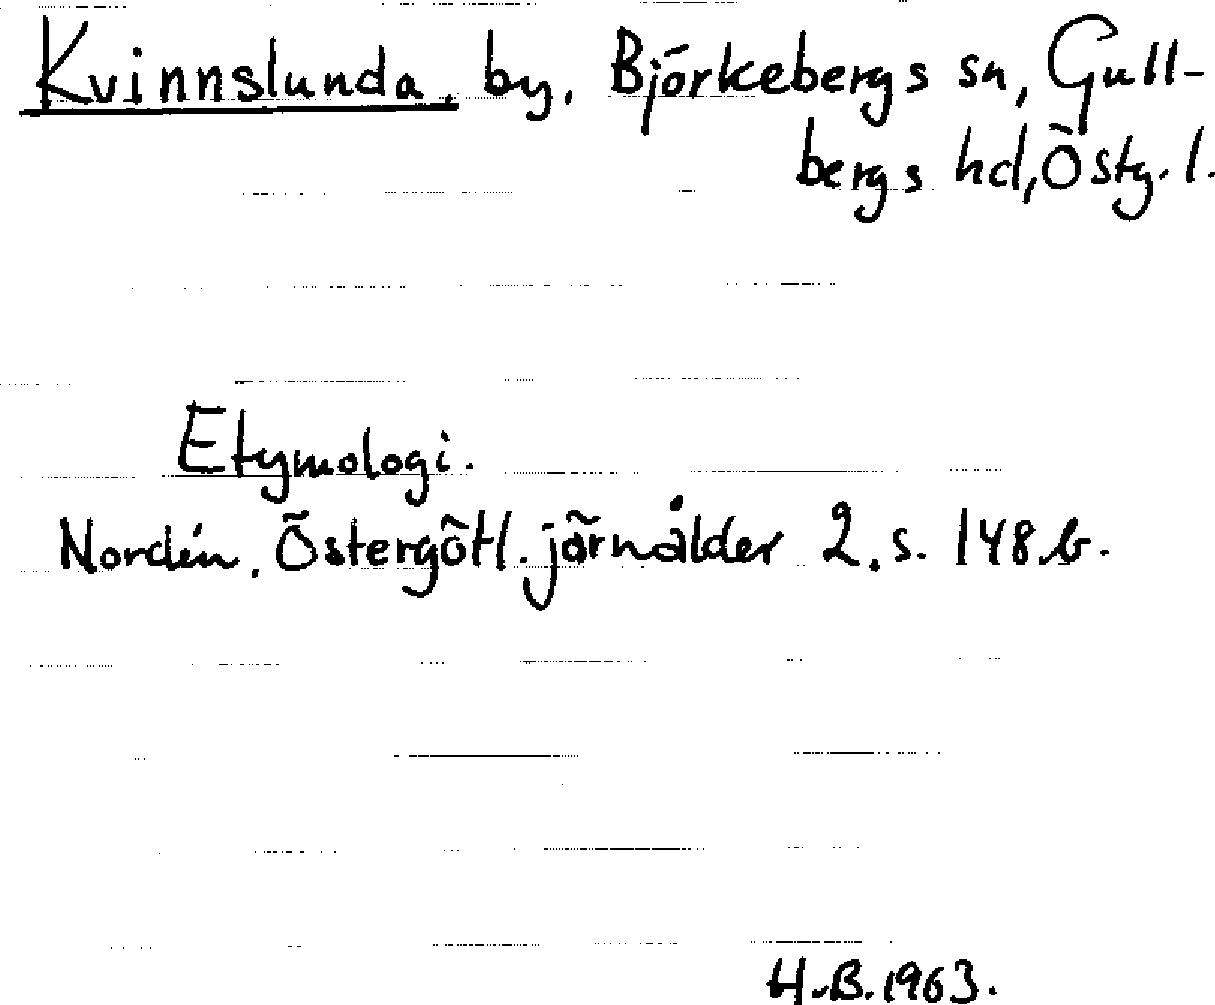 Kvinnslunda, by, Björkebergs sn, Gull-
bergs hd, Östg. l.
Etymologi.
Nordén, Östergötl. järnålder 2. s. 148 b.
H.B. 1963.